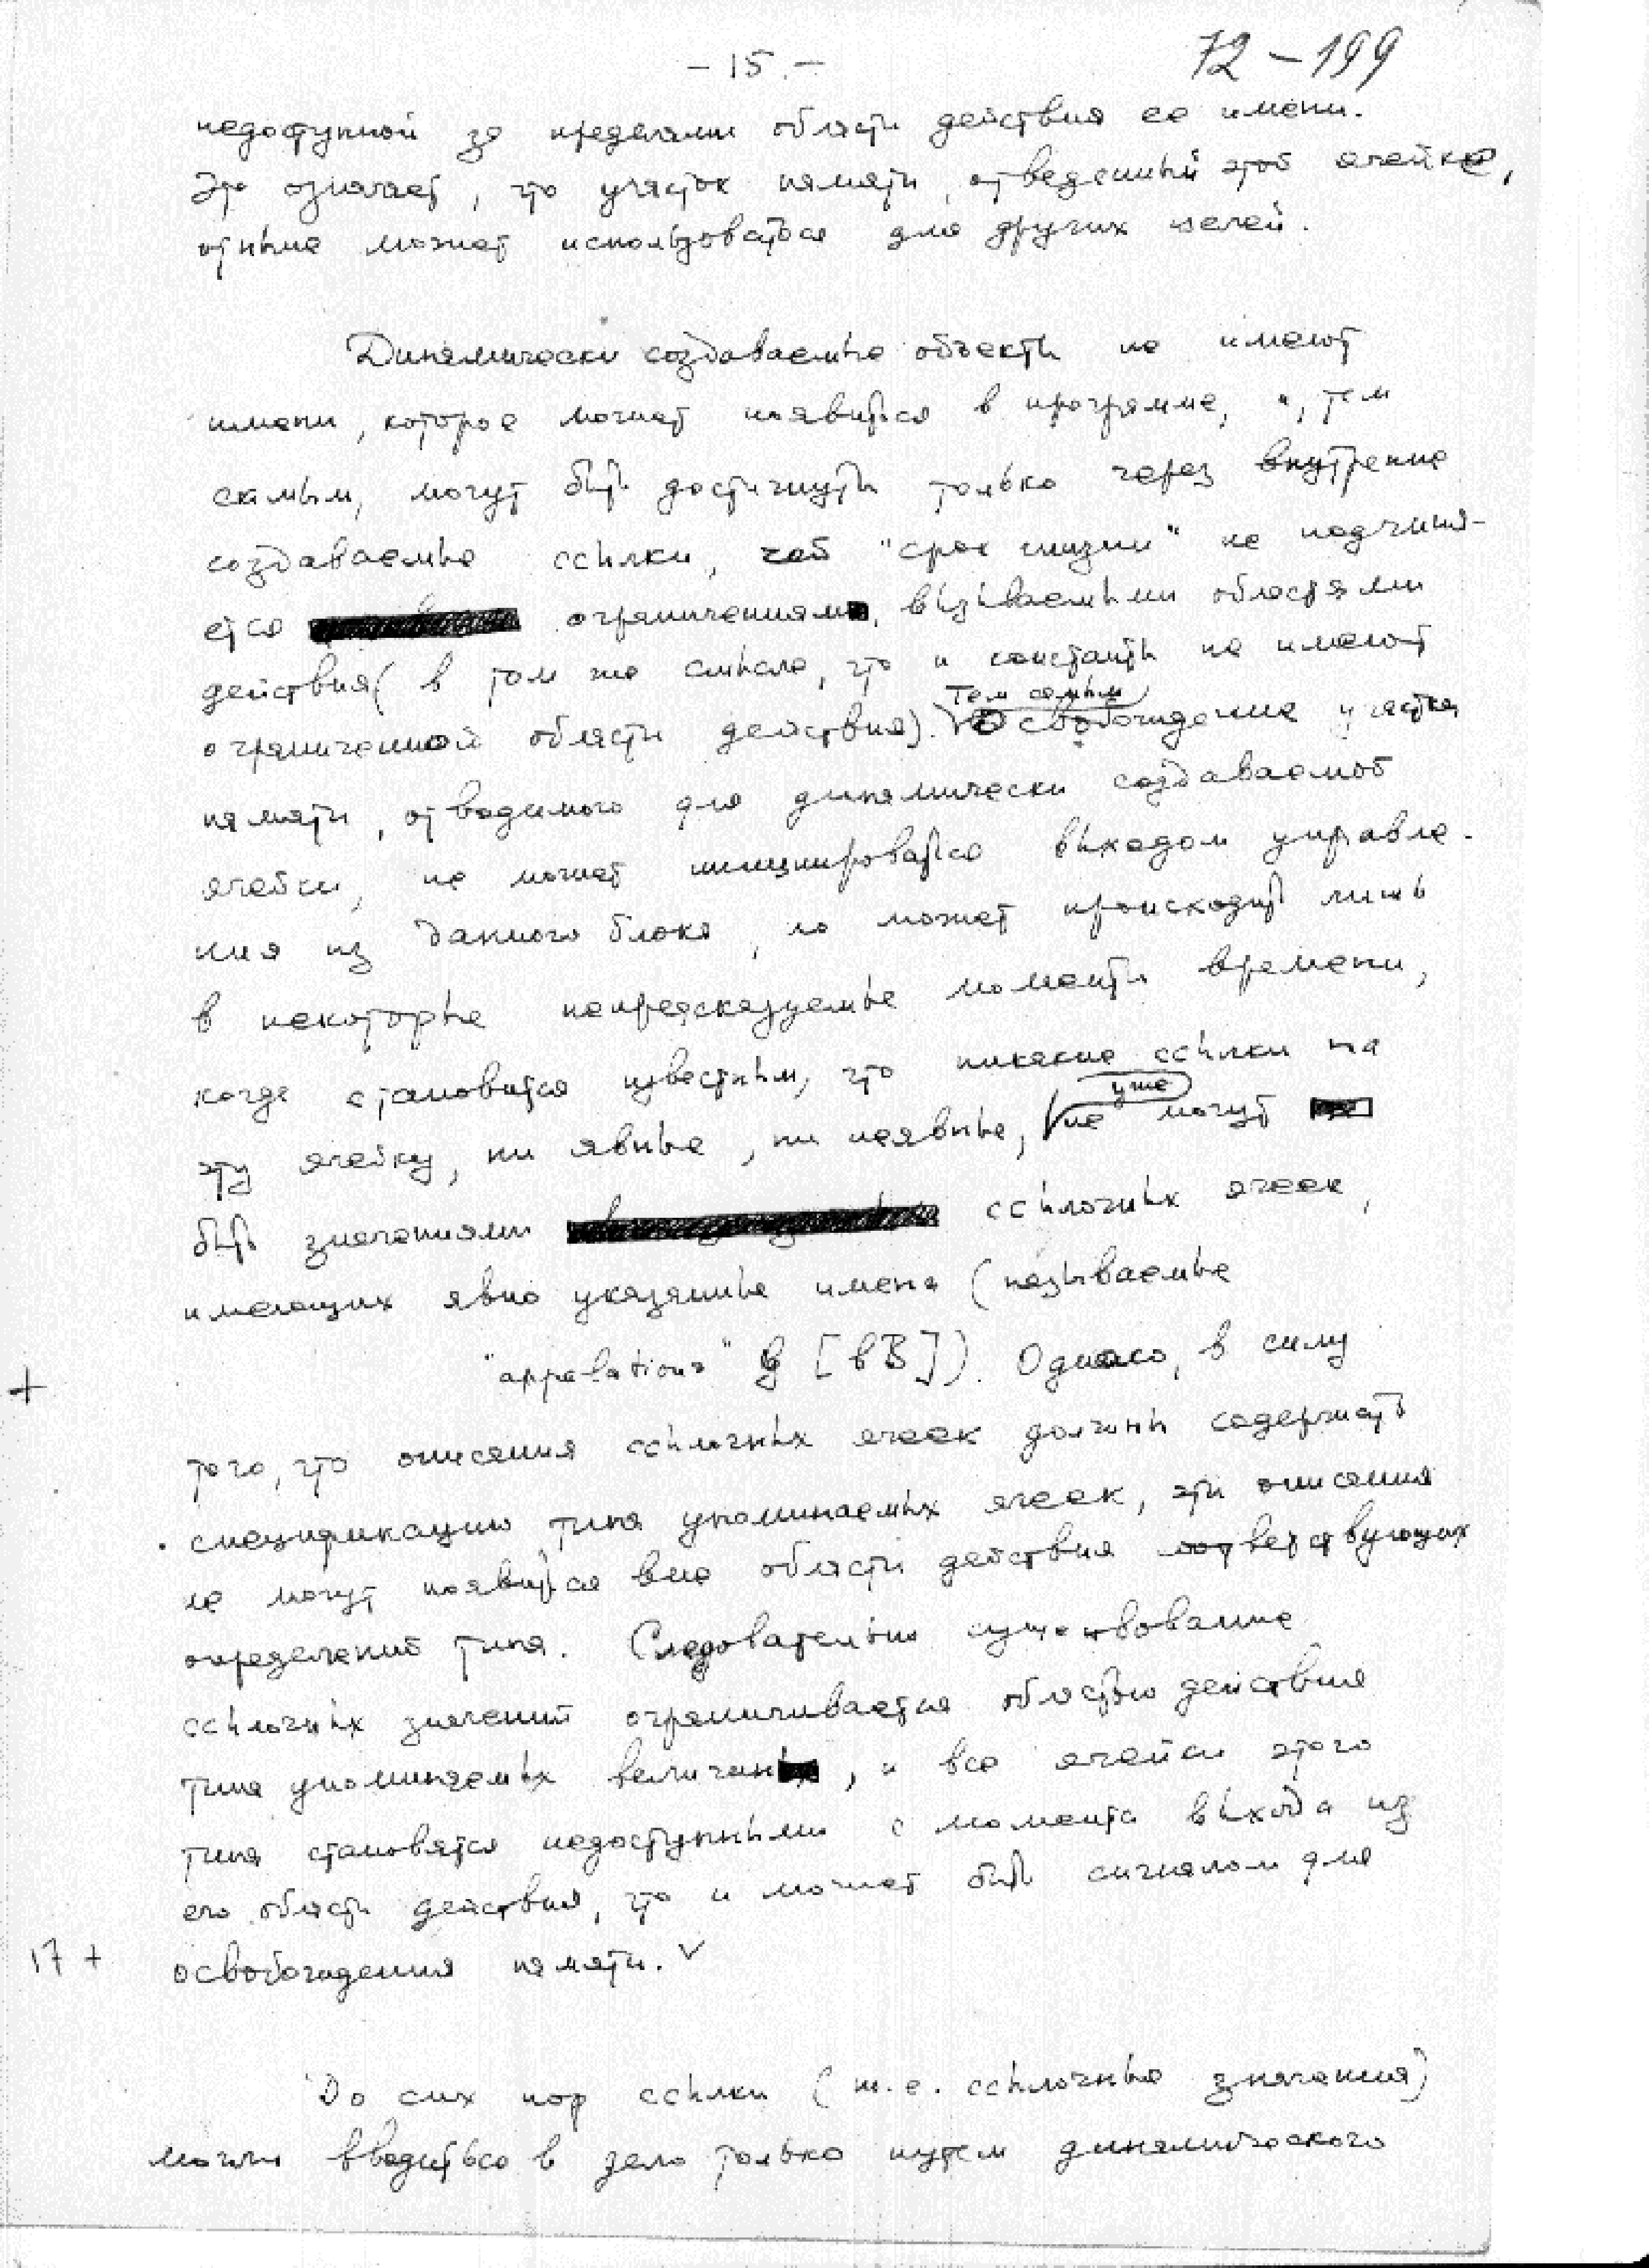 - 15. -
72-199
недоступной за пределами области действия ее имени.
Это означает, что участок памяти, отведенный этой ячейке,
отныне может использоваться для других целей.
Динамически создаваемые объекты не имеют
имени, которое может появиться в программе, и, тем
самым, могут быть достигнуты только через внутренне
создаваемые ссылки, чей "срок жизни" не подчиня-
ется ограничениям, вызываемыми областями
действия (в том же смысле, что и константы не имеют
ограниченной области действия). Тем самым освобождение участка
памяти, отводимого для динамически создаваемой
ячейки, не может инициироваться выходом управле-
ния из данного блока, но может происходить лишь
в некоторые непредсказуемые моменты времени,
когда становится известным, что никакие ссылки на
эту ячейку, ни явные, ни неявные, уже не могут
быть значениями ссылочных ячеек,
имеющих явно указанные имена (называемые
"appelations" в [вВ]). Однако, в силу
+
того, что описания ссылочных ячеек должны содержать
спецификацию типа упоминаемых ячеек, эти описания
не могут появиться вне области действия соответствующих
определений типа. Следовательно существование
ссылочных значений ограничивается областью действия
типа упоминаемых величин, и все ячейки этого
типа становятся недоступными с момента выхода из
его области действия, что и может быть сигналом для
17 + освобождения памяти. V
До сих пор ссылки (т.е. ссылочные значения)
могли вводиться в дело только путем динамического